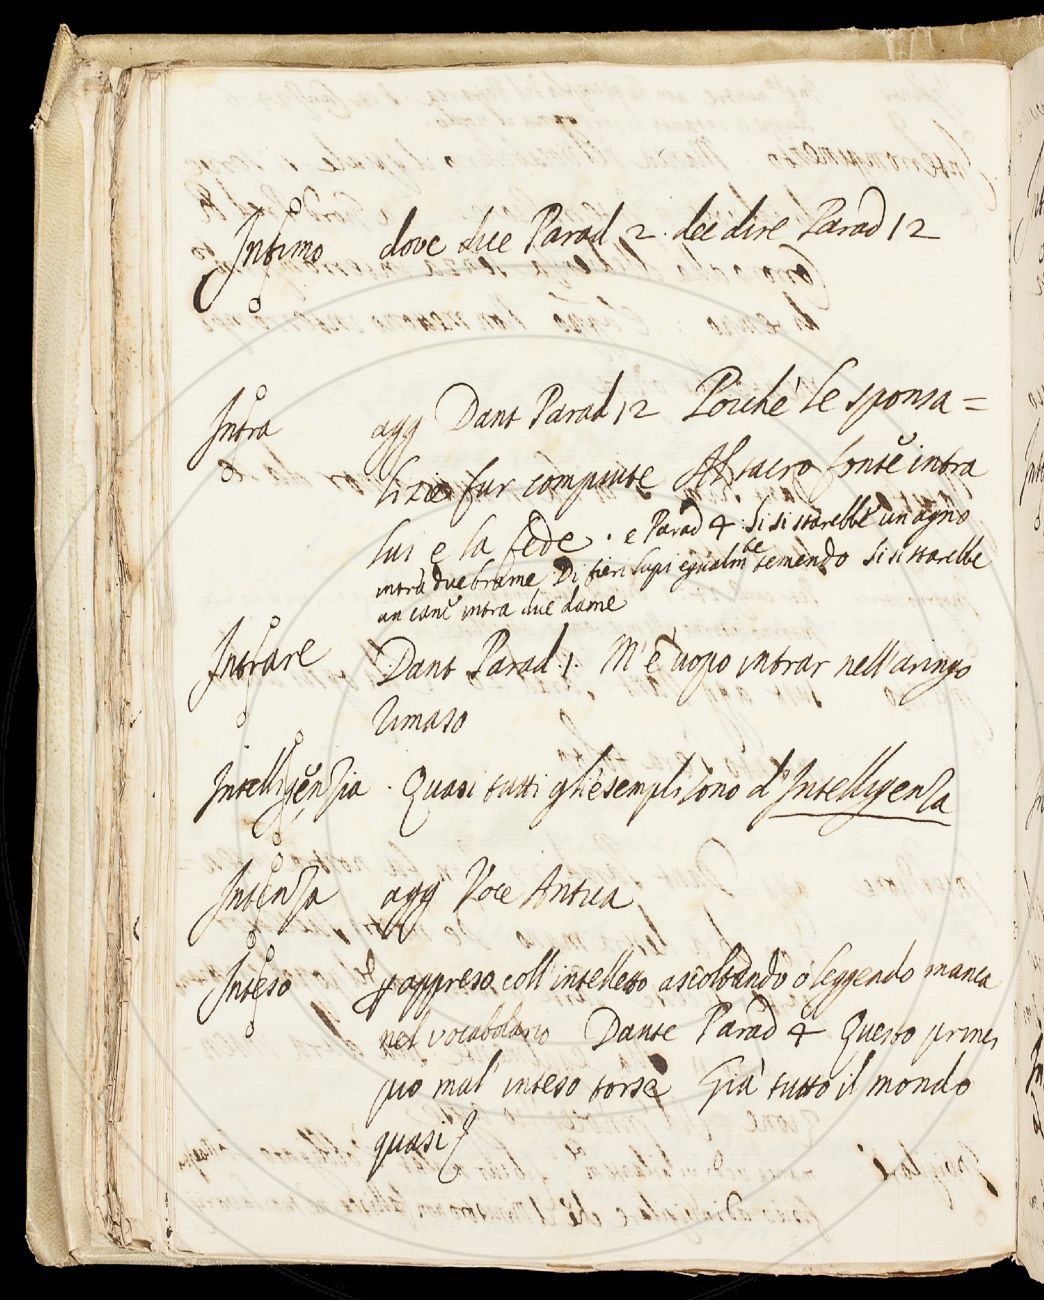 Infimo dove dice Parad 2. dee dire Parad 12
Intra agg Dant Parad 12 Poiché le sponsa=
lizie fur compiute Al sacro fonte intra
lui e la fede. e Parad 4 Si si starebbe un agno
intra due brame Di fieri lupi egualm.te temendo Si si starebbe
un cane intra due dame
Intrare Dant Parad 1. M'è uopo intrar nell'aringo
rimaso
Intelligenzia. Quasi tutti gli esempli sono d'Intelligenza
Intenza agg Voce Antica
Inteso p appreso coll'intelletto ascoltando o leggendo manca
nel vocabolario Dante Parad 4 Questo princi
pio mal' inteso torse Già tutto il mondo
quasi